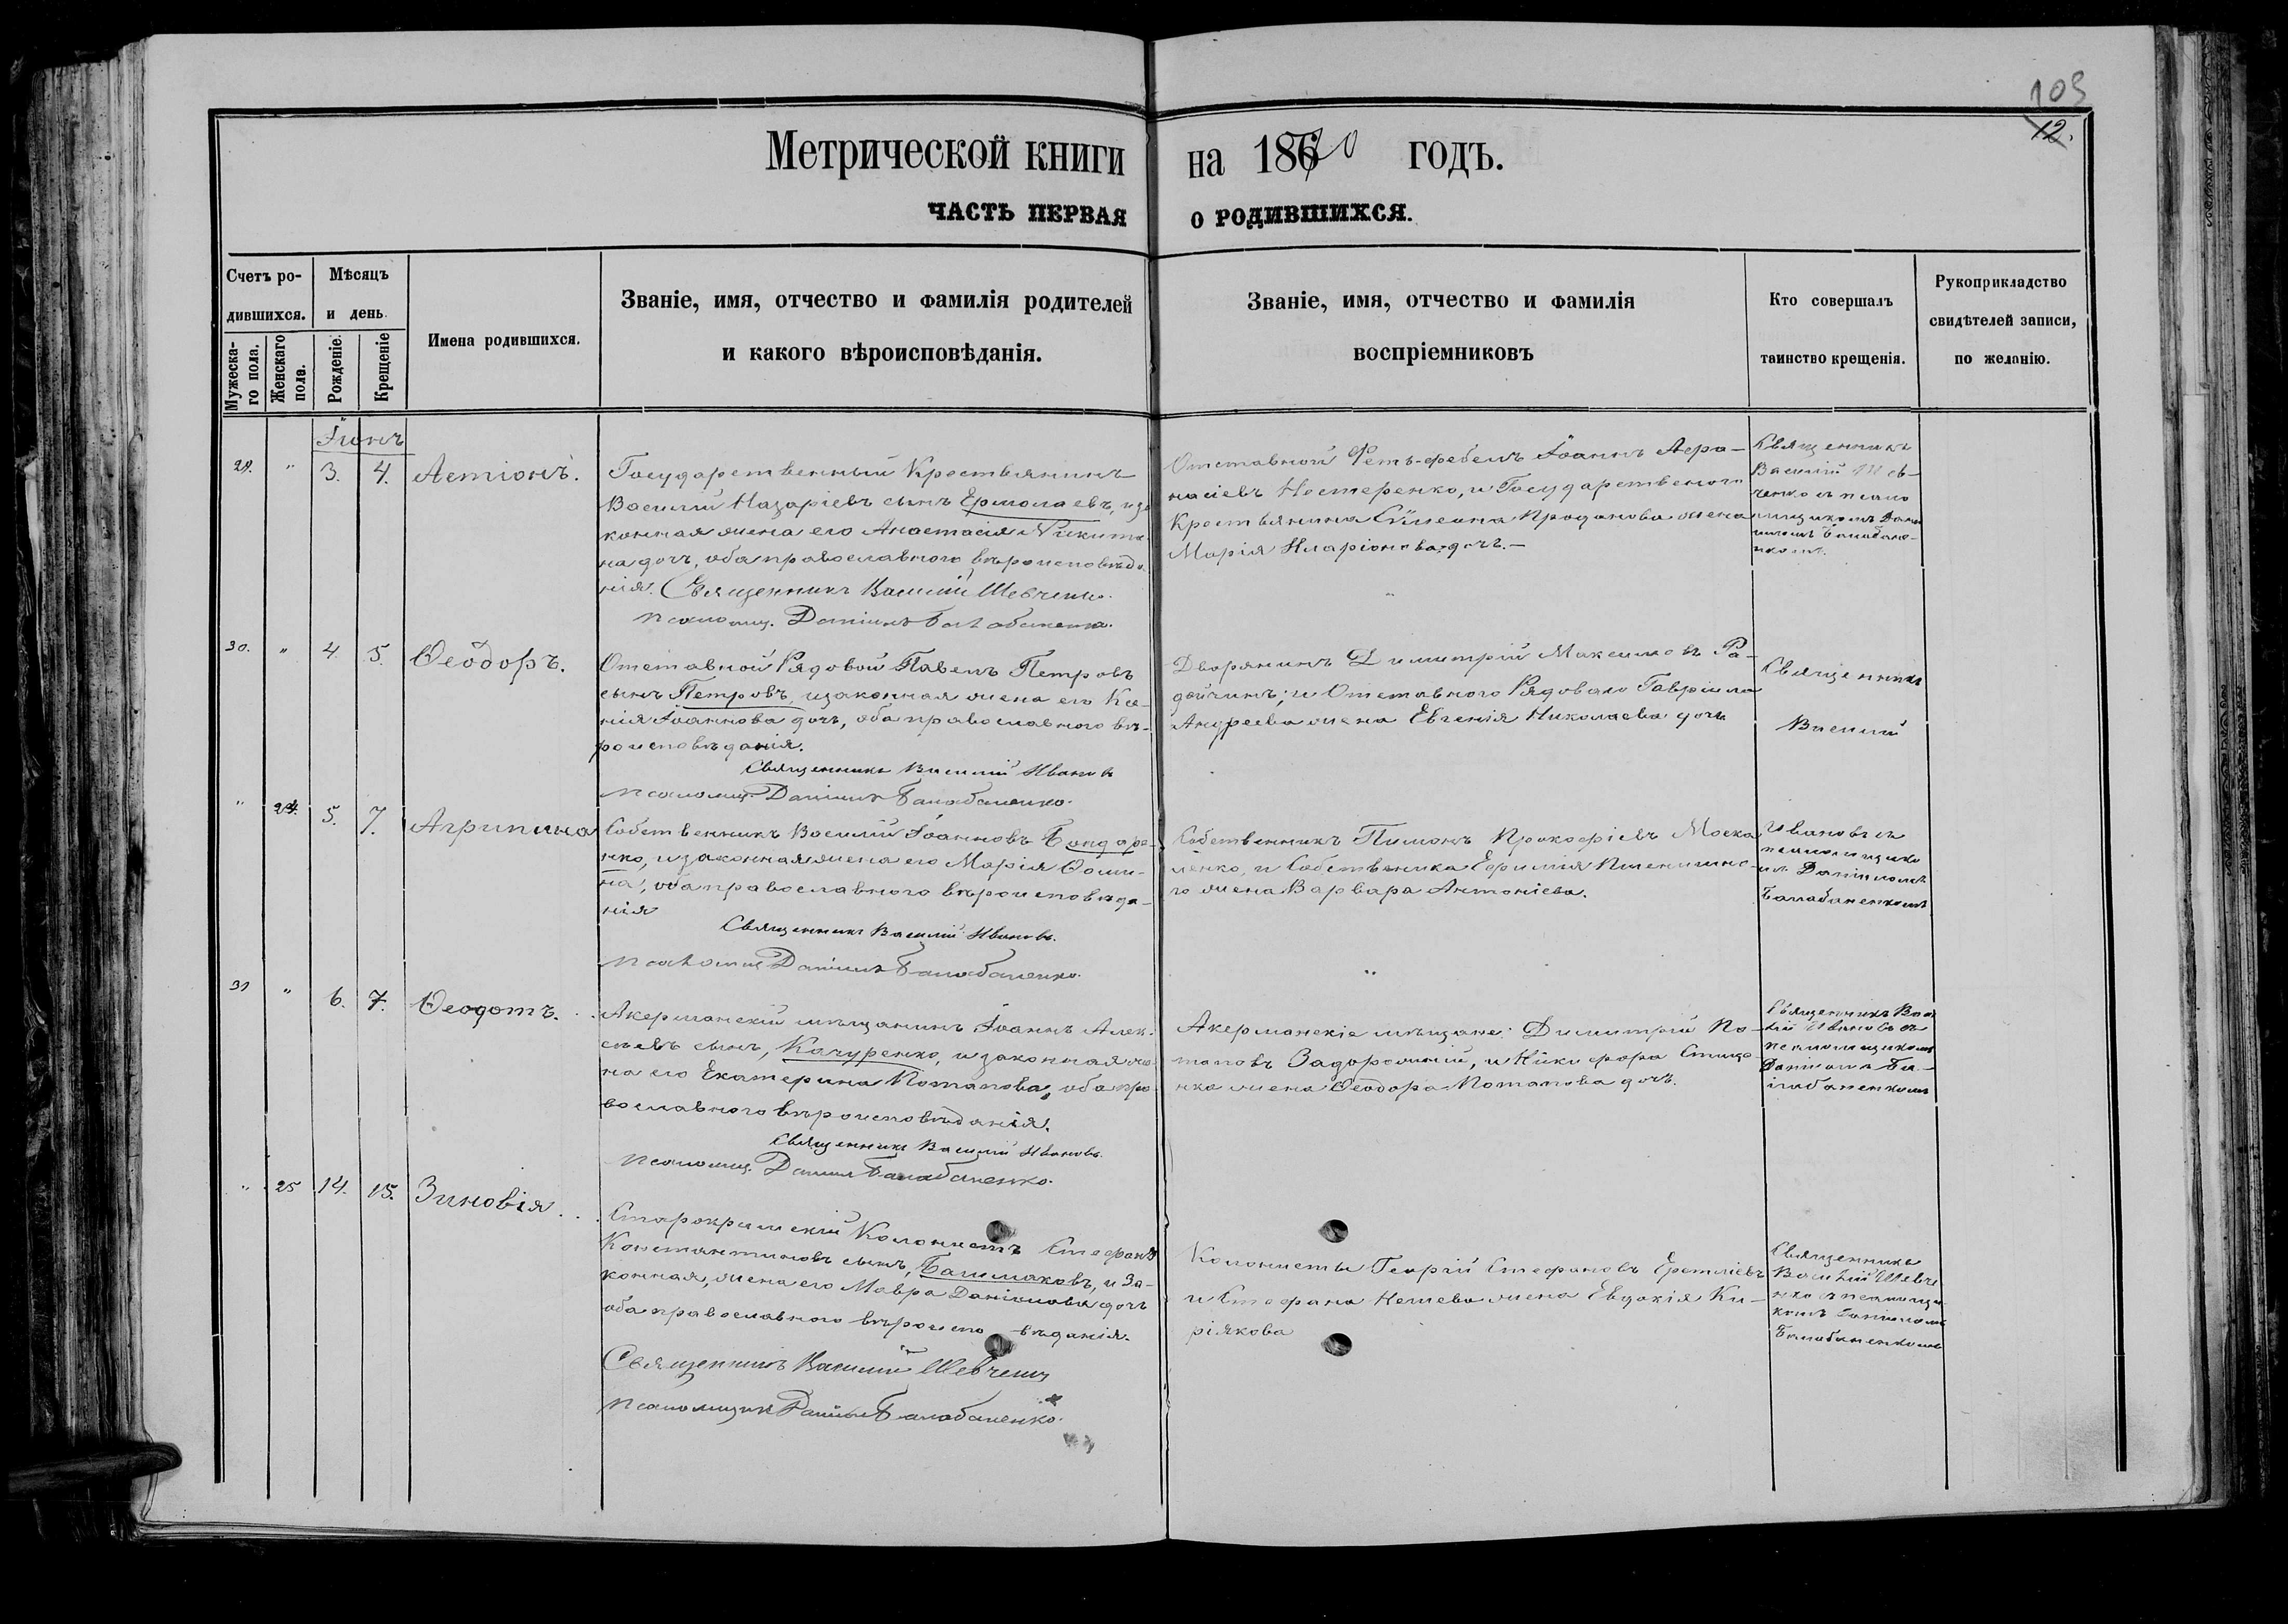 103
12.
Метрической книги на 1870 годъ.
ЧАСТЬ ПЕРВАЯ О РОДИВШИХСЯ.
Счетъ ро-
дившихся.
Мужеска-
го пола.
Женскаго
пола.
Мѣсяцъ
и день.
Рожденіе.
Крещеніе
Имена родившихся.
Званіе, имя, отчество и фамилія родителей
и какого вѣроисповѣданія.
Званіе, имя, отчество и фамилія
воспріемниковъ
Кто совершалъ
таинство крещенія.
Рукоприкладство
свидѣтелей записи,
по желанію.
Іюнь
29. " 3. 4. Аетіонъ.
Государственный Крестьянинъ
Василій Назаріевъ сынъ Ермолаевъ, и за
конная жена его Анастасія Никити
на дочь, оба православнаго вѣроисповѣда
нія. Священникъ Василій Шевченко.
Псаломщ. Даніилъ Балабаненко.
Отставной Фетъ-фебель Іоаннъ Аѳа-
насіевъ Нестеренко, и Государственого
Крестьянина Сѵмеона Проданова жена
Марія Иларіонова дочь.—
Священникъ
Василій Шев-
ченко съ псало
мщикомъ Дані
иломъ Балабане-
нкомъ.
30. " 4. 5. Ѳеодоръ.
Отставной Рядовой Павелъ Петровъ
сынъ Петровъ, и законная жена его Ксе-
нія Іоаннова дочь, оба православного вѣ-
роисповѣданія.
Священникъ Василій Ивановъ
Псаломщ. Даніилъ Балабаненко.
Дворянинъ Димитрій Максимовъ Ра-
дойчинъ; и Отставного Рядоваго Гавріила
Андреева жена Евгенія Николаева дочь
Священникъ
Василій
Ивановъ съ
псаломщико
мъ Даніиломъ
Балабаненкомъ
" 24. 5. 7. Агрипина
Собственникъ Василій Іоанновъ Бондаре-
нко, и законная жена его Марія Ѳоми-
на, оба православного вѣроисповѣда-
нія
Священникъ Василій Ивановъ.
Псаломщ Даніилъ Балабаненко.
Собственникъ Пимонъ Прокофіевъ Моска
ленко, и Собственика Ефимія Пшенишно-
го жена Варвара Антоніева.
31 " 6. 7. Ѳеодотъ.
Акерманскій мѣщанинъ Іоаннъ Алек-
сѣевъ сынъ, Качуренко, и законная же
на его Екатерина Потапова, оба пра
вославного вѣроисповѣданія.
Священникъ Василій Ивановъ.
Псаломщ. Даніилъ Балабаненко.
Акерманскіе мѣщане: Димитрій По-
таповъ Задорожній, и Никифора
нка жена Ѳеодора Потапова дочь.
Священникъ Васи
лій Ивановъ съ
псаломщикомъ
Даніиломъ Ба-
лабаненкомъ
" 25 14. 15. Зиновія.
Старокримскій Колонистъ Стефанъ
Константиновъ сынъ, Балшаковъ, и за-
конная, жена его Мавра Даніилова дочь
оба православного вѣроиспо вѣданія.
Священникъ Василій Шевченко
Псаломщикъ Даніилъ Балабаненко.
Колонисты Георгій Стефановъ
и Стефана Нешева жена Евдокія Ки-
ріякова
Священникъ
Василій Шевче
нко съ псаломщи
комъ Даніиломъ
Балабаненкомъ